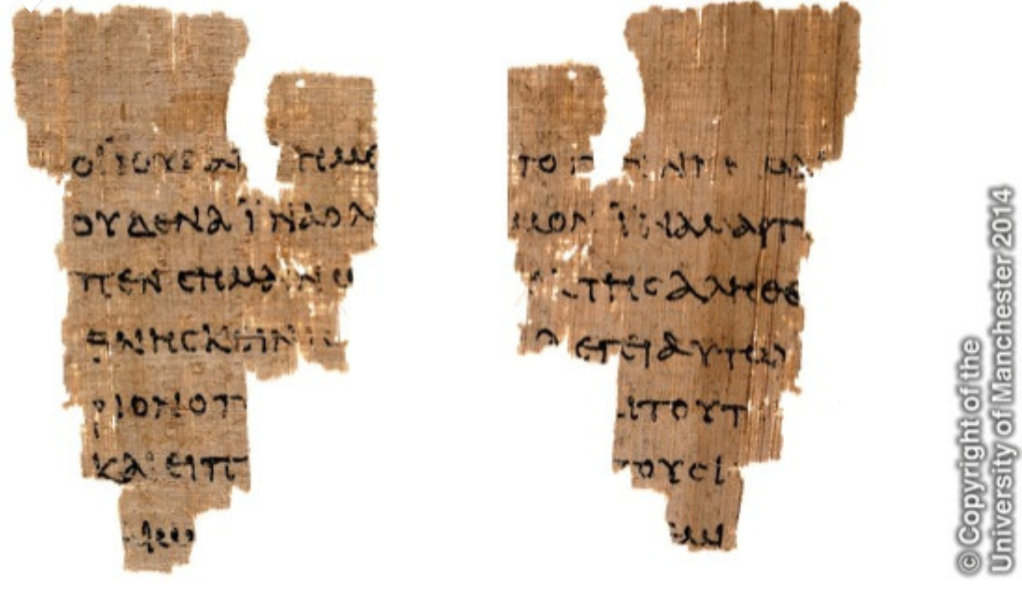 ΟΪΙΟΥΔΑΙ ΗΜΕ
ΟΥΔΕΝΑΪΝΑΟΛ
ΠΕΝCΗΜΑΙΝΩ
ΘΝΗCΚΕΙΝ
ΡΙΟΝΟΠ
ΚΑΙΕΙΠ
ΤΟ
ΜΟΝΪΝΑΜΑΡΤ
ΤΗCΑΛΗΘΕ
ΛΕΓΕΙΑΥΤΩ
ΑΙΤΟΥΤ
ΤΟΥCΙ
© Copyright of the
University of Manchester 2014